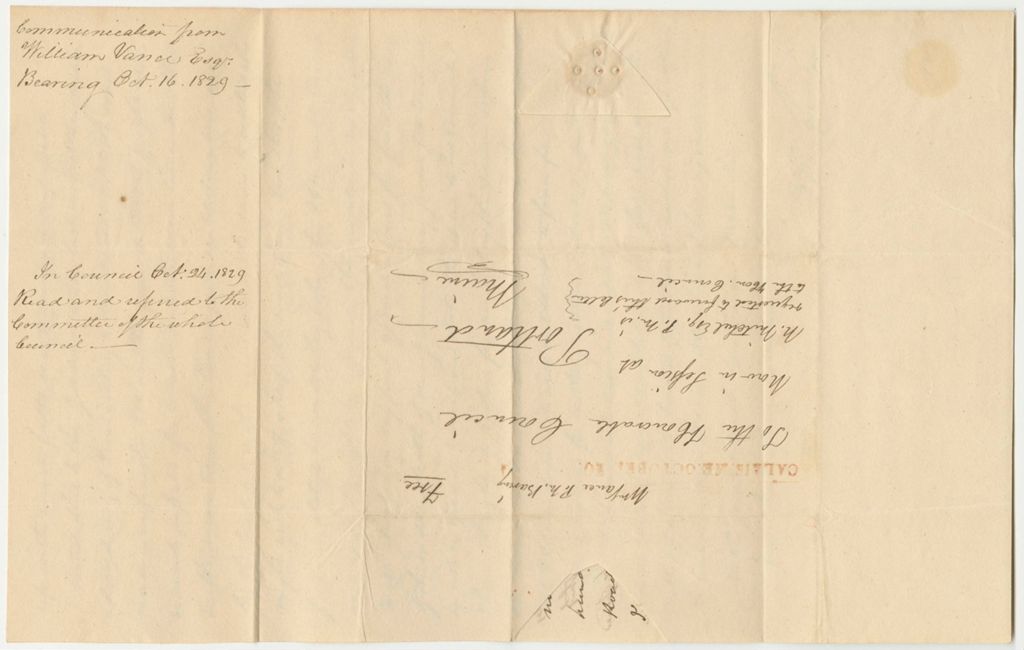 Communication from
William Vance Esqr.
Bearing Oct. 16. 1829 —
In Council Oct: 24. 1829
Read and referred to the
Committee of the whole
Council. —
Wm Vance P. M. Baring
Free
CALAIS. ME. OCTOBER 20.
To the Honorable Council
Now in Session at
Portland
Maine
N. Mitchel Esq. P. M. is
requested to forward this letter
to the Hon. Council —